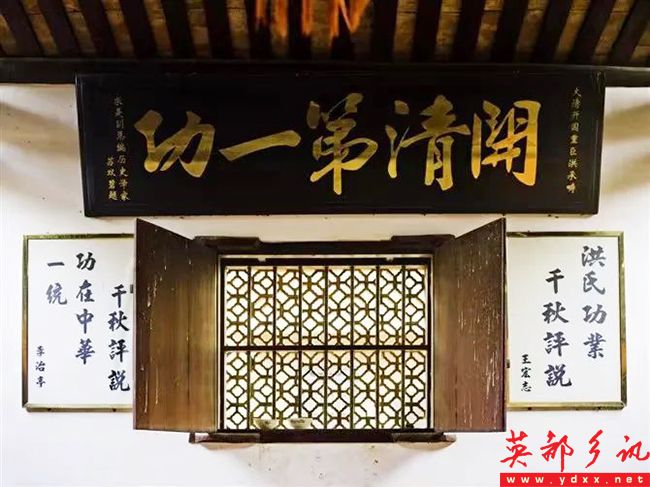 大清开国重臣洪承畴
開清第一功
求是副总编历史学家
苏双碧题
洪氏功業
千秋評説
王宏志
千秋評説
功在中華
一統
李治亭
英都乡讯
www.ydxx.net